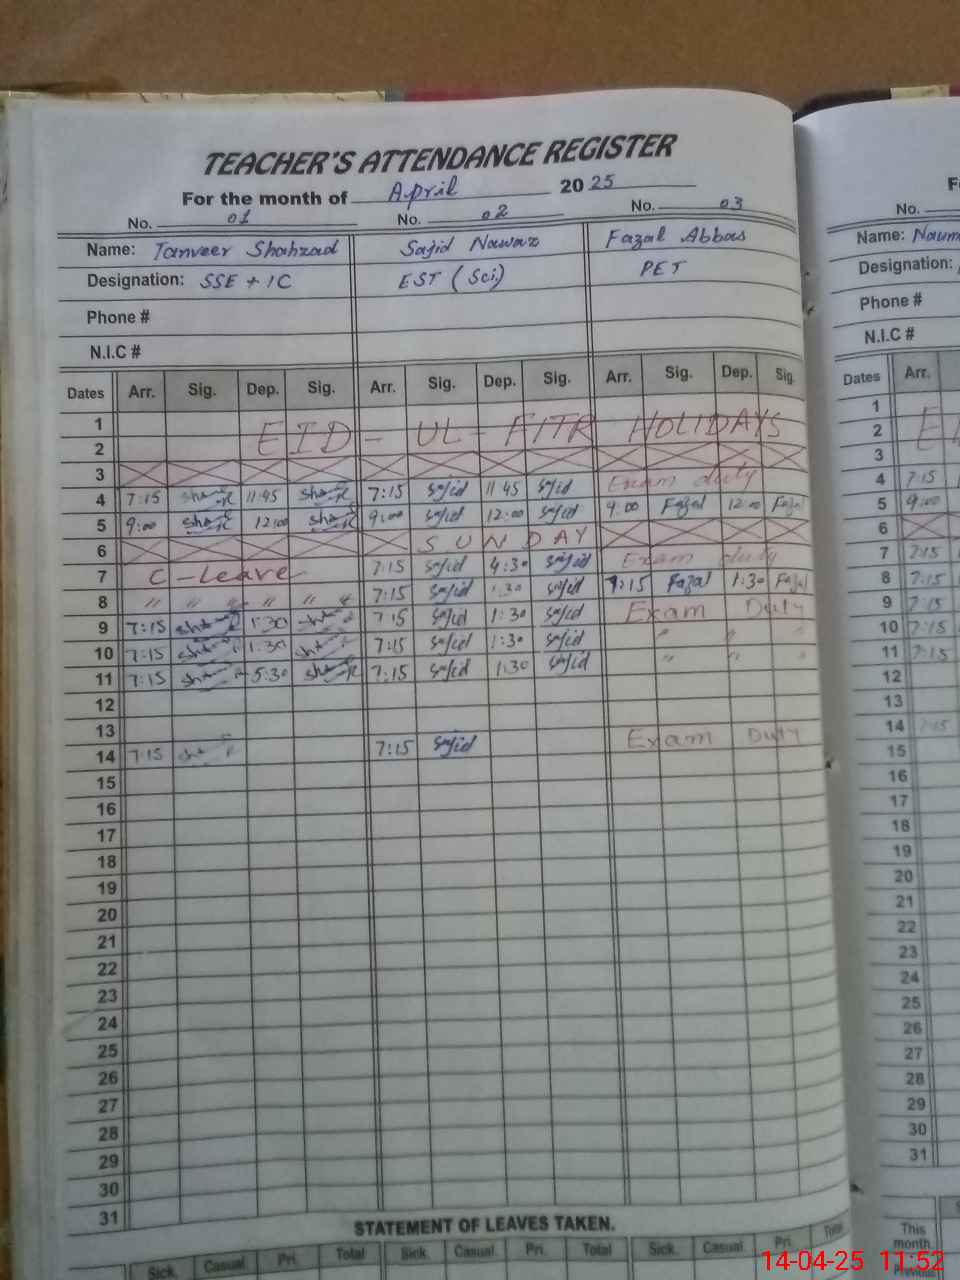 TEACHER'S ATTENDANCE REGISTER
For the month of April 2025
No. 01 No. 02 No. 03
Name: Tanveer Shahzad Sajid Nawaz Fazal Abbas
Designation: SSE + IC EST (Sci.) PET
Phone #
N.I.C #
Dates Arr. Sig. Dep. Sig. Arr. Sig. Dep. Sig. Arr. Sig. Dep. Sig.
1
2 EID - UL - FITR HOLIDAYS
3
4 7:15 11:45 7:15 Sajid 11:45 Sajid Exam duty
5 9:00 12:00 9:00 Sajid 12:00 Sajid 9:00 Fazal 12:00 Fazal
6 SUNDAY
7 C-Leave 7:15 Sajid 4:30 Sajid Exam duty
8 " " " " " " 7:15 Sajid 1:30 Sajid 7:15 Fazal 1:30 Fazal
9 7:15 1:30 7:15 Sajid 1:30 Sajid Exam Duty
10 7:15 1:30 7:15 Sajid 1:30 Sajid " " "
11 7:15 5:30 7:15 Sajid 1:30 Sajid " " "
12
13
14 7:15 7:15 Sajid Exam Duty
15
16
17
18
19
20
21
22
23
24
25
26
27
28
29
30
31
STATEMENT OF LEAVES TAKEN.
Sick. Casual. Pri. Total Sick. Casual. Pri. Total Sick. Casual. Pri. Total
No.
Name: Naum
Designation:
Phone #
N.I.C #
Dates Arr.
1
2
3
4 7:15
5 9:00
6
7 7:15
8 7:15
9 7:15
10 7:15
11 7:15
12
13
14 7:15
15
16
17
18
19
20
21
22
23
24
25
26
27
28
29
30
31
This
month
Previous
14-04-25 11:52